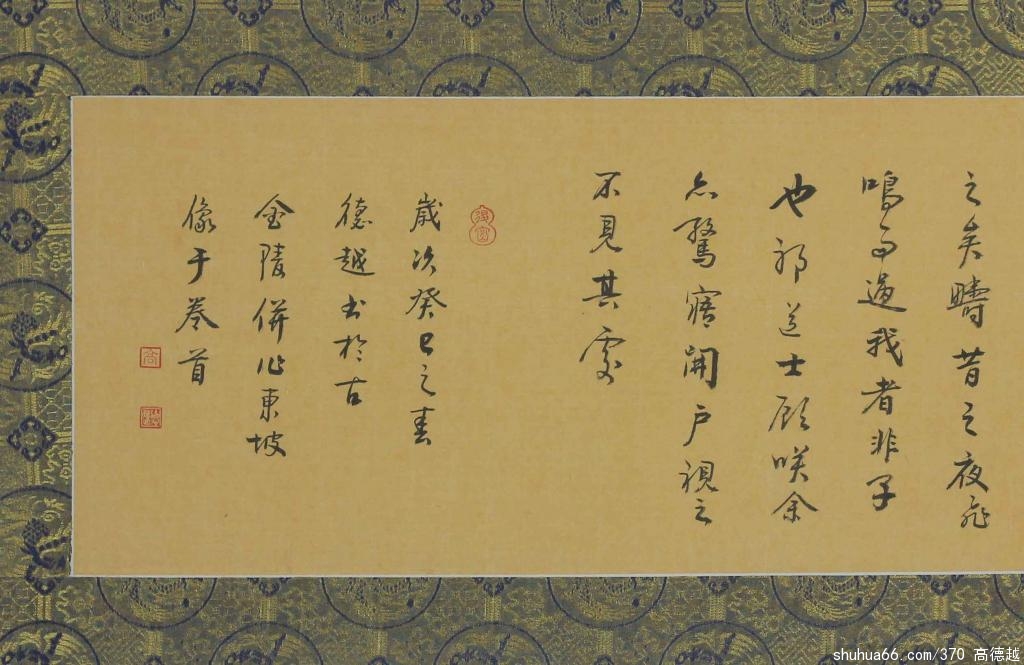 之矣疇昔之夜飛
鳴而過我者非子
也耶道士顧咲余
亦驚寤開戶視之
不見其處
歲次癸巳之春
德越書於古
金陵併作東坡
像于卷首
shuhua66.com/370 高德越